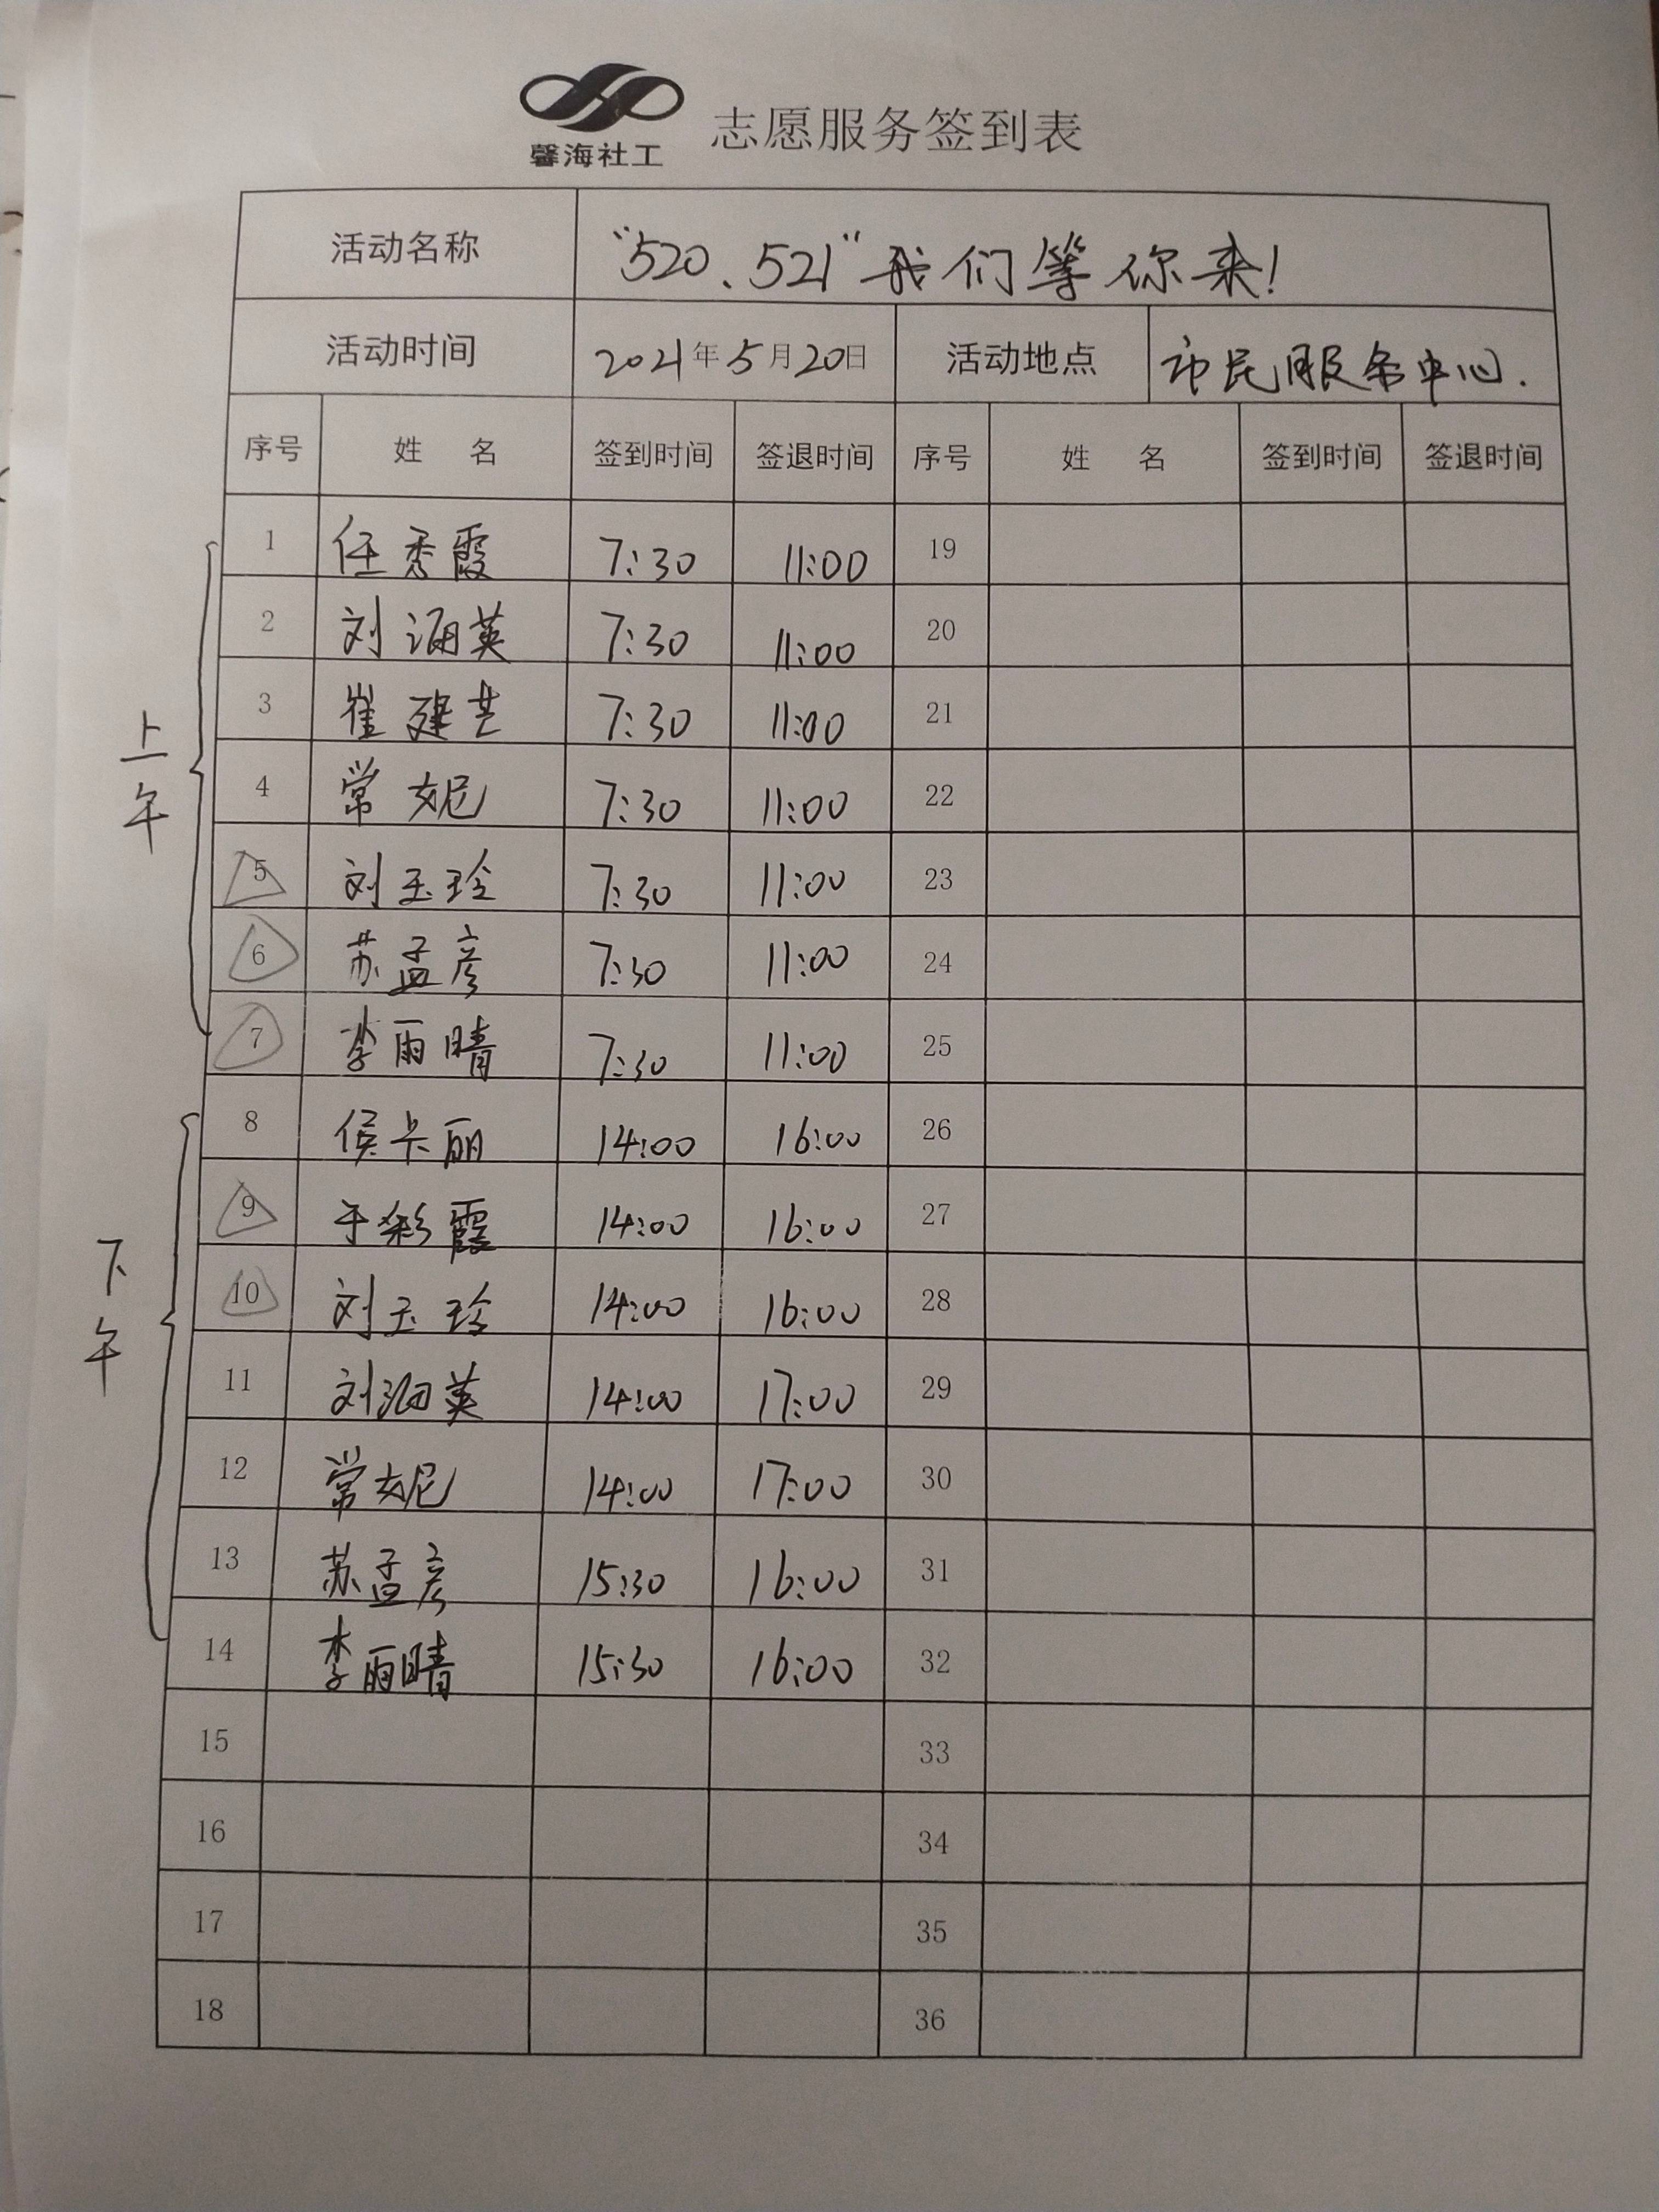 馨海社工 志愿服务签到表
活动名称 "520、521"我们等你来!
活动时间 2021年5月20日 活动地点 市民服务中心.
序号 姓 名 签到时间 签退时间 序号 姓 名 签到时间 签退时间
上午
1 任秀霞 7:30 11:00 19
2 刘海英 7:30 11:00 20
3 崔建芸 7:30 11:00 21
4 常妮 7:30 11:00 22
5 刘玉玲 7:30 11:00 23
6 苏孟彦 7:30 11:00 24
7 李雨晴 7:30 11:00 25
下午
8 侯卡丽 14:00 16:00 26
9 于彩霞 14:00 16:00 27
10 刘玉玲 14:00 16:00 28
11 刘海英 14:00 17:00 29
12 常妮 14:00 17:00 30
13 苏孟彦 15:30 16:00 31
14 李雨晴 15:30 16:00 32
15 33
16 34
17 35
18 36